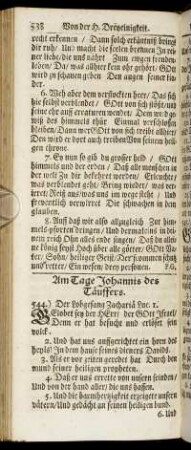 538 Von der H. Dreyeinigkeit.
recht erkennen / Dann solch erkäntnüß bringt
dir ruh / Un macht die seelen brennen In rei-
ner liebe
leben / Da / was allhier kein ohr gehört, GOtt
wird zu schauen geben Den augen seiner kin-
der.
6. Weh aber dem verstockten heer / Das sich
hie selbst verblendet / GOtt von sich stößt, und
seine ehr auf creaturen wendet / Dem wird ge-
wiß des himmels thür Einmal verschlossen
bleiben / Dann wer GOtt von sich treibt allhier /
Den wird er dort auch treiben Von seinem heili-
gen throne.
7. Ey nun so gib du grosser held / GOtt
himmels und der erden / Daß alle menschen in
der welt Zu dir bekehret werden / Erleuchte /
was verblendet geht / Bring wieder / was ver-
irret / Reiß aus / was uns im wege steht / Und
freventlich verwirret Die schwachen in dem
glauben.
8. Auff daß wir also allzugleich Zur him-
mels-pforten dringen / Und dermaleins in dei-
nem reich Ohn alles ende singen / Daß du allei-
ne König seyst Hoch über alle götter / GOtt Va-
ter / Sohn / heiliger Geist / Der frommen schutz
und retter / Ein wesen / drey personen. P. G.
Am Tage Johannis des
Täuffers.
544.) Der Lobgesang Zachariä Luc. 1.
Gelobet sey der HErr / der GOtt Israel /
Denn er hat besucht und erlöset sein
volck.
2. Und hat uns auffgericht ein horn des
heyls / In dem hause seines dieners Davids.
3. Als er vor zeiten geredet hat / Durch den
mund seiner heiligen propheten.
4. Daß er uns errette von unsern feinden /
Und von der hand aller / die uns hassen.
5. Und die barmhertzigkeit erzeigete unsern
vätern / Und gedächt an seinen heiligen bund.
6. Und